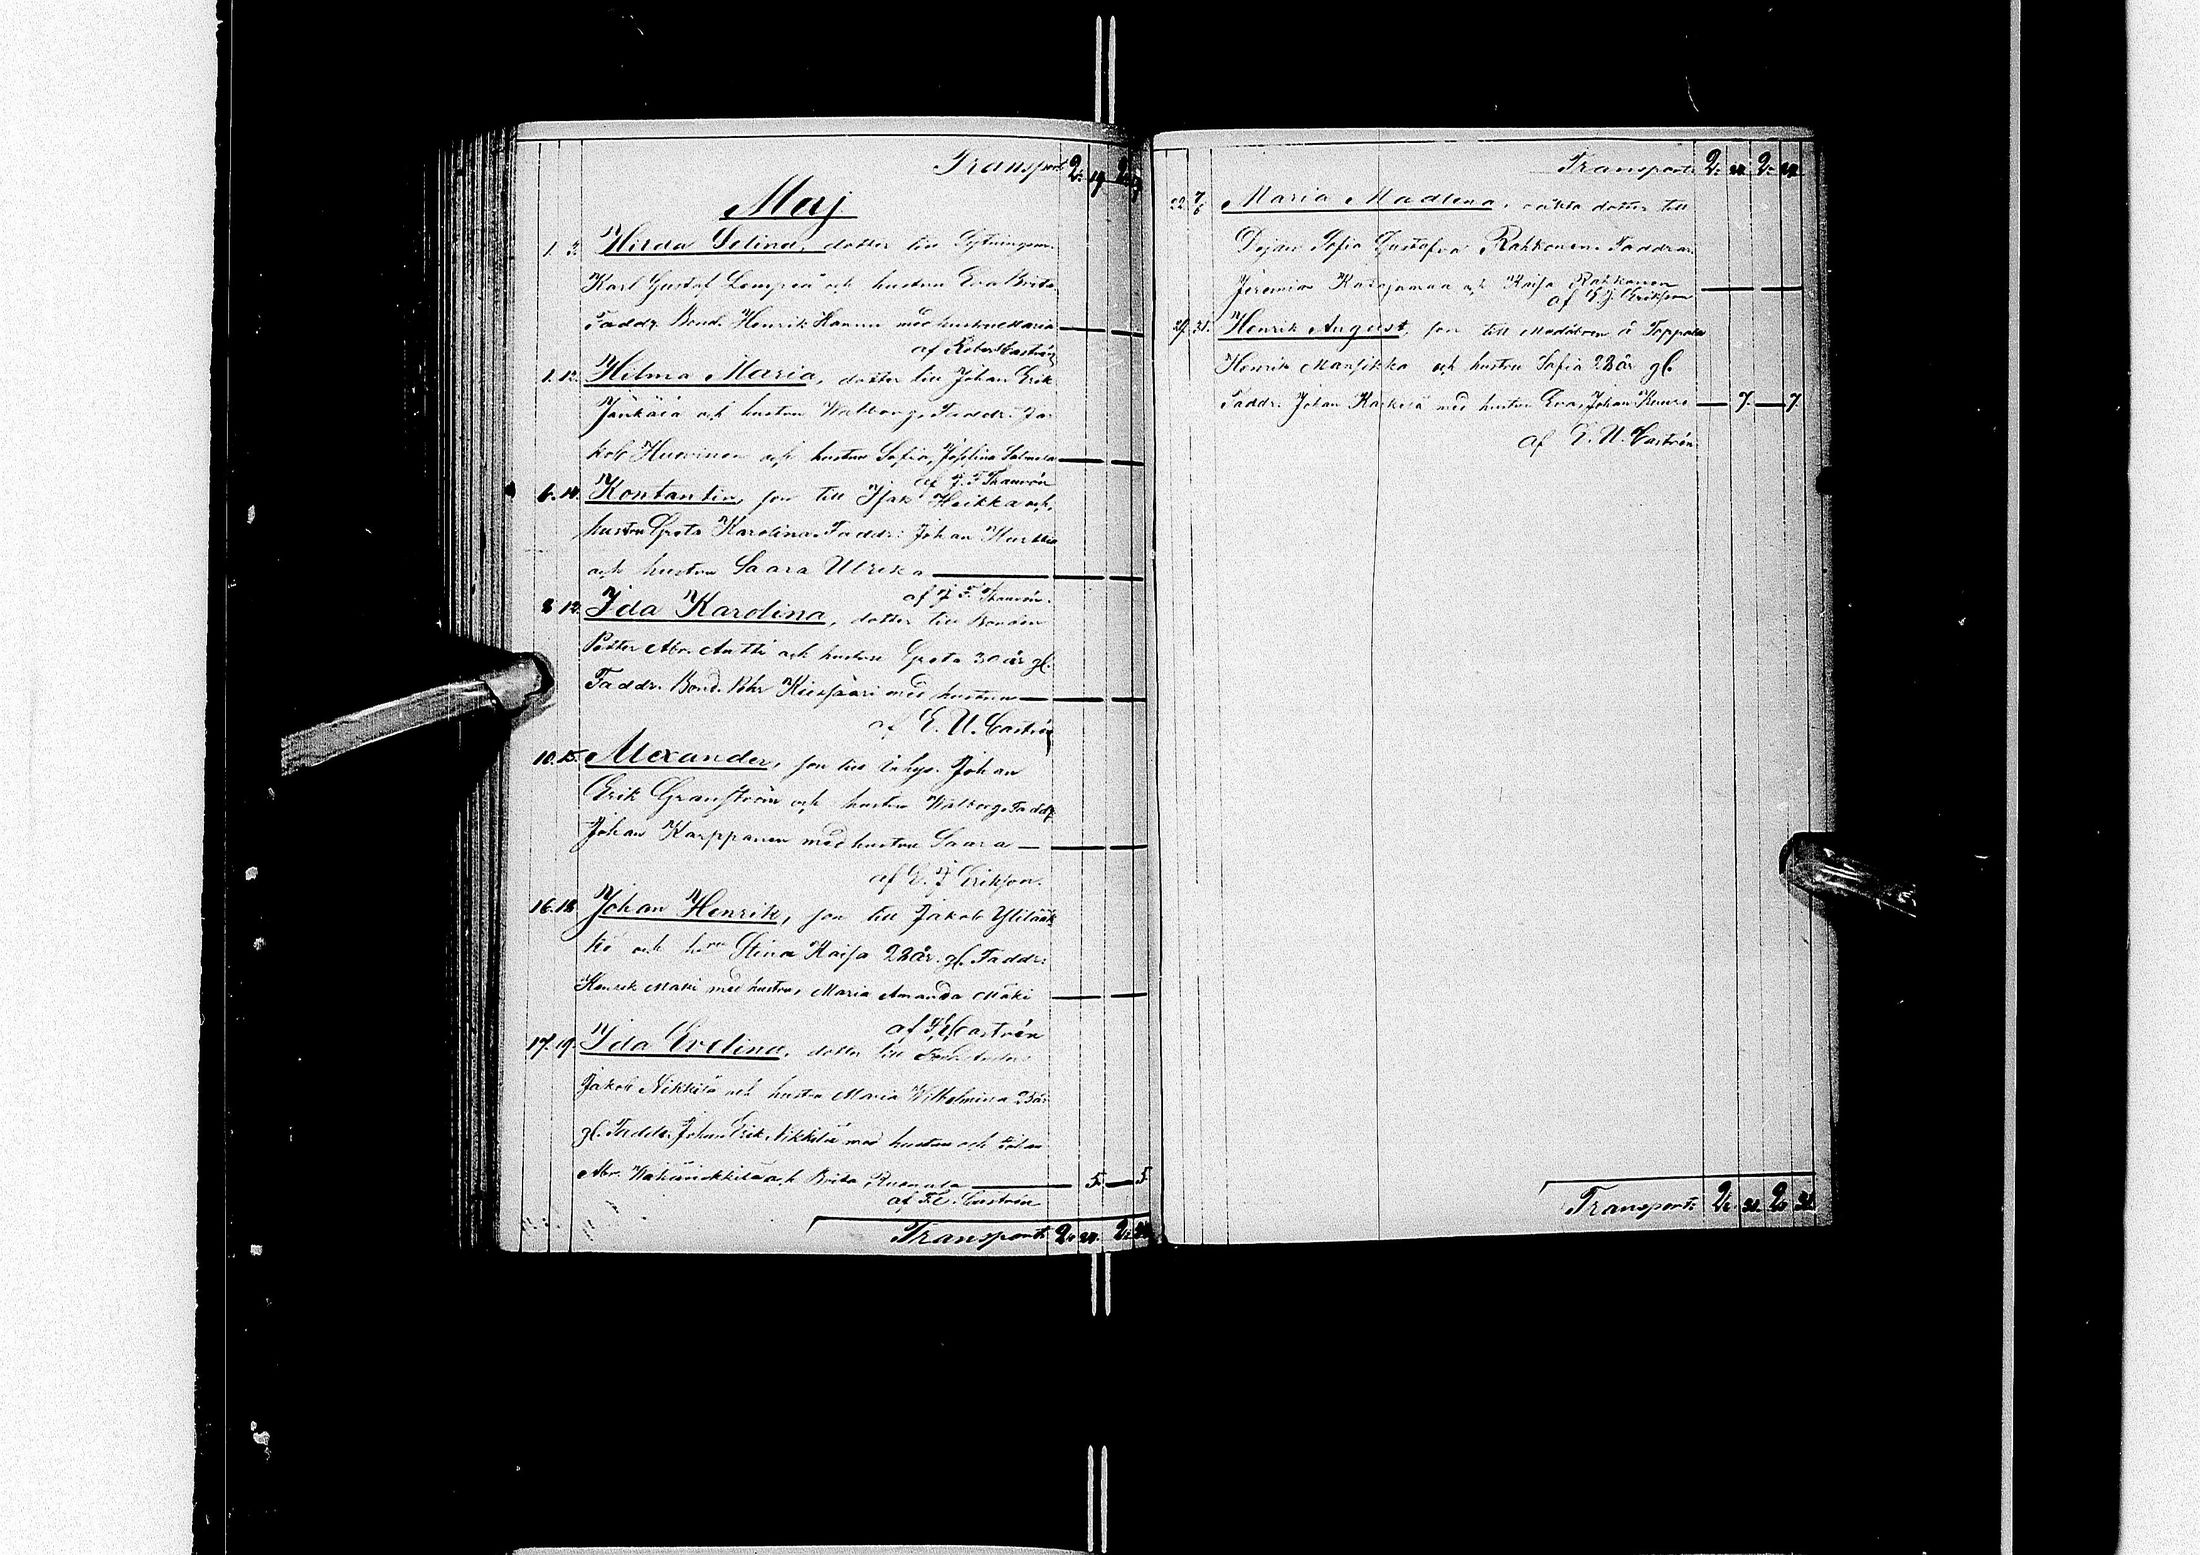 Transport 2. 19. 2. 19.
Maj
1. 3. Hilda Selina, dotter till
Karl Gustaf Lempeä och hustrun Eva Brita.
Faddr. Bond. Henrik Hannu med hustru Maria
af Robert Castrén
1. 12. Hilma Maria, dotter till Johan Erik
Jänkälä och hustrun Walborg. Faddr. Ja-
kob Huovinen och hustrun Sofia, Josefina Salmela
af J. F. Thauvón
6. 14. Kontantin, son till Isak Heikka och
hustrun Greta Karolina. Faddr: Johan Hurtta
och hustrun Saara Ulrika
af J. F. Thauvón.
8. 12. Ida Karolina, dotter till Bonden
Petter Abr. Antti och hustrun Greta 30 år gl.
Faddr. Bond. Pehr Kiexsaari med hustrun
af E. U. Castrén
10. 15. Alexander, son till Inhys. Johan
Erik Granström och hustrun Walborg. Faddr.
Johan Karppanen med hustrun Saara
af E. J. Erikson.
16. 18. Johan Henrik, son till Jakob Ylilääk-
kö och h:run Stina Kaisa 28 år. gl. Faddr:
Henrik Mäki med hustru, Maria Amanda Mäki
af F. E. Castrén
17. 19. Ida Evelina, dotter till
Jakob Nikkilä och hustru Maria Wilhelmina 25 år
gl. Faddr. Johan Erik Nikkilä med hustrun och
Abr. och Brita
5. 5.
af F. E. Castrén
Transport 2. 24. 2. 24.
Transport 2. 24. 2. 24.
22. 7/6 Maria Madlena, oäkta dotter till
Dejan Sofia Gustafva Rahkonen. Faddrar.
Jeremias Katajamaa och Kaisa Rahkonen
af E. J. Erikson
27. 31. Henrik August, son till Måddboen å Toppola
Henrik Mansikka och hustru Sofia 28 år gl.
Faddr. Johan Karkela med hustru Eva, Johan
7. 7.
af E. U. Castrén
Transport 2. 31. 2. 31.